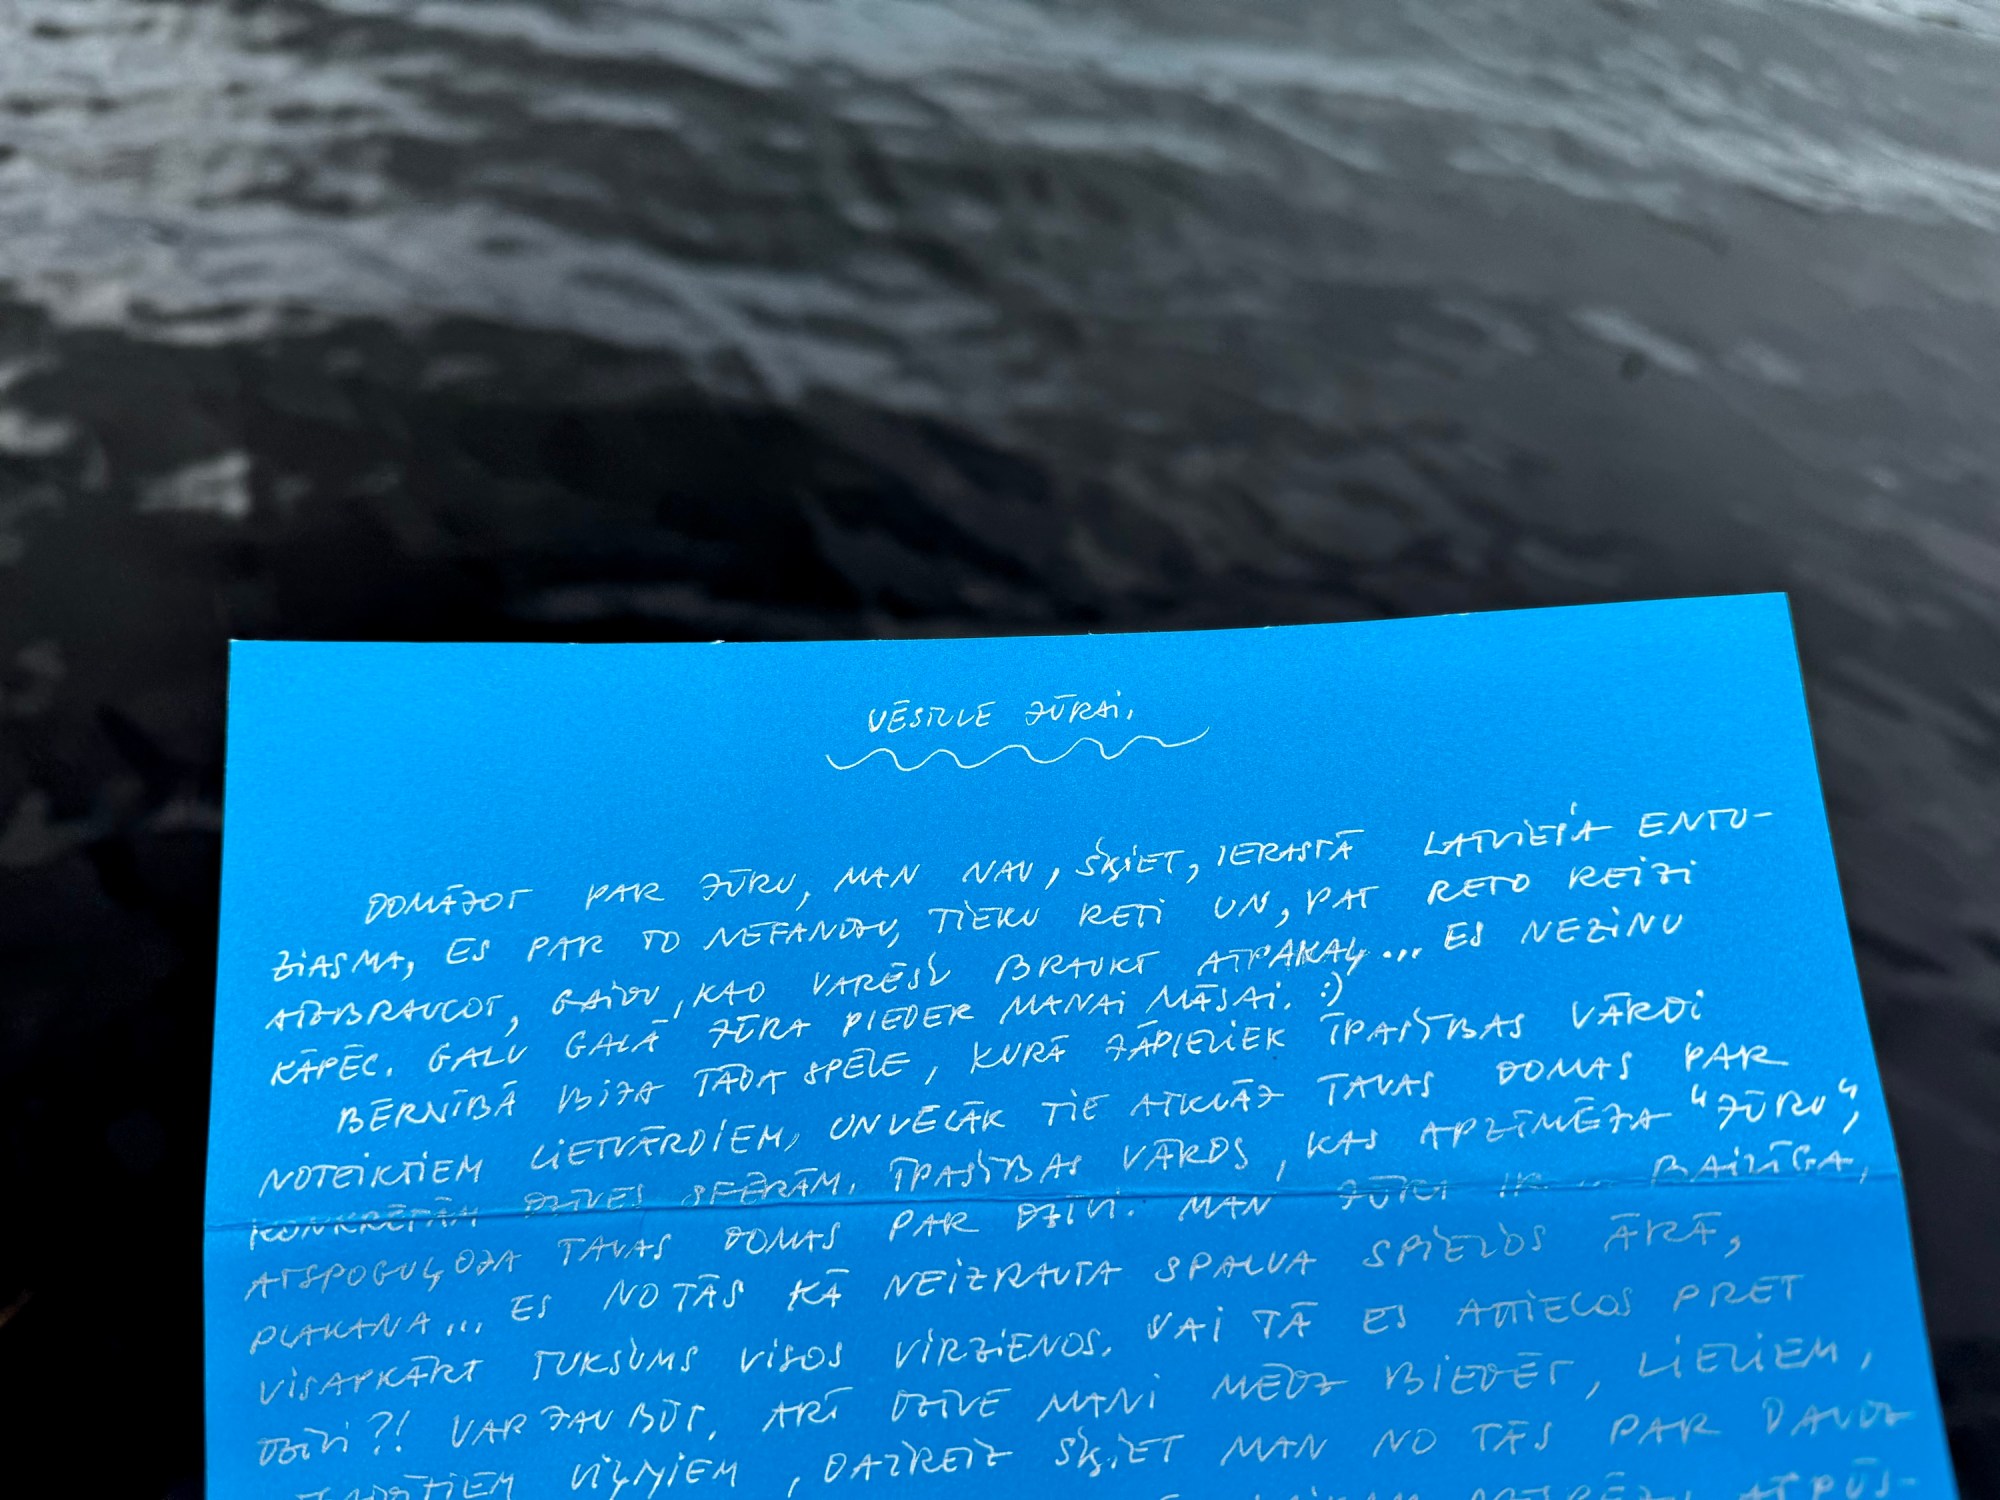 VĒSTULE JŪRAI.
DOMĀJOT PAR JŪRU, MAN NAV, ŠĶIET, IERASTĀ LATVIEŠA ENTU-
ZIASMA, ES PAR TO NEFANOJU, TIEKU RETI UN, PAT RETO REIZI
AIZBRAUCOT, GAIDU, KAD VARĒŠU BRAUKT ATPAKAĻ... ES NEZINU
KĀPĒC. GALU GALĀ JŪRA PIEDER MANAI MĀSAI. :)
BĒRNĪBĀ BIJA TĀDA SPĒLE, KURĀ JĀPIELIEK ĪPAŠĪBAS VĀRDI
NOTEIKTIEM LIETVĀRDIEM, UN VĒLĀK TIE ATKLĀJ TAVAS DOMAS PAR
KONKRĒTĀM DZĪVES SFĒRĀM. ĪPAŠĪBAS VĀRDS, KAS APZĪMĒJA "JŪRU",
ATSPOGUĻOJA TAVAS DOMAS PAR DZĪVI. MAN JŪRA IR .. BAILĪGA,
PLAKANA... ES NO TĀS KĀ NEIZRAUTA SPALVA SPIEŽOS ĀRĀ,
VISAPKĀRT TUKŠUMS VISOS VIRZIENOS. VAI TĀ ES ATTIECOS PRET
DZĪVI?! VAR JAU BŪT, ARĪ DZĪVE MANI MĒDZ BIEDĒT, LIELIEM,
VIĻŅIEM, DAŽREIZ ŠĶIET MAN NO TĀS PAR DAUDZ
ATPŪS-